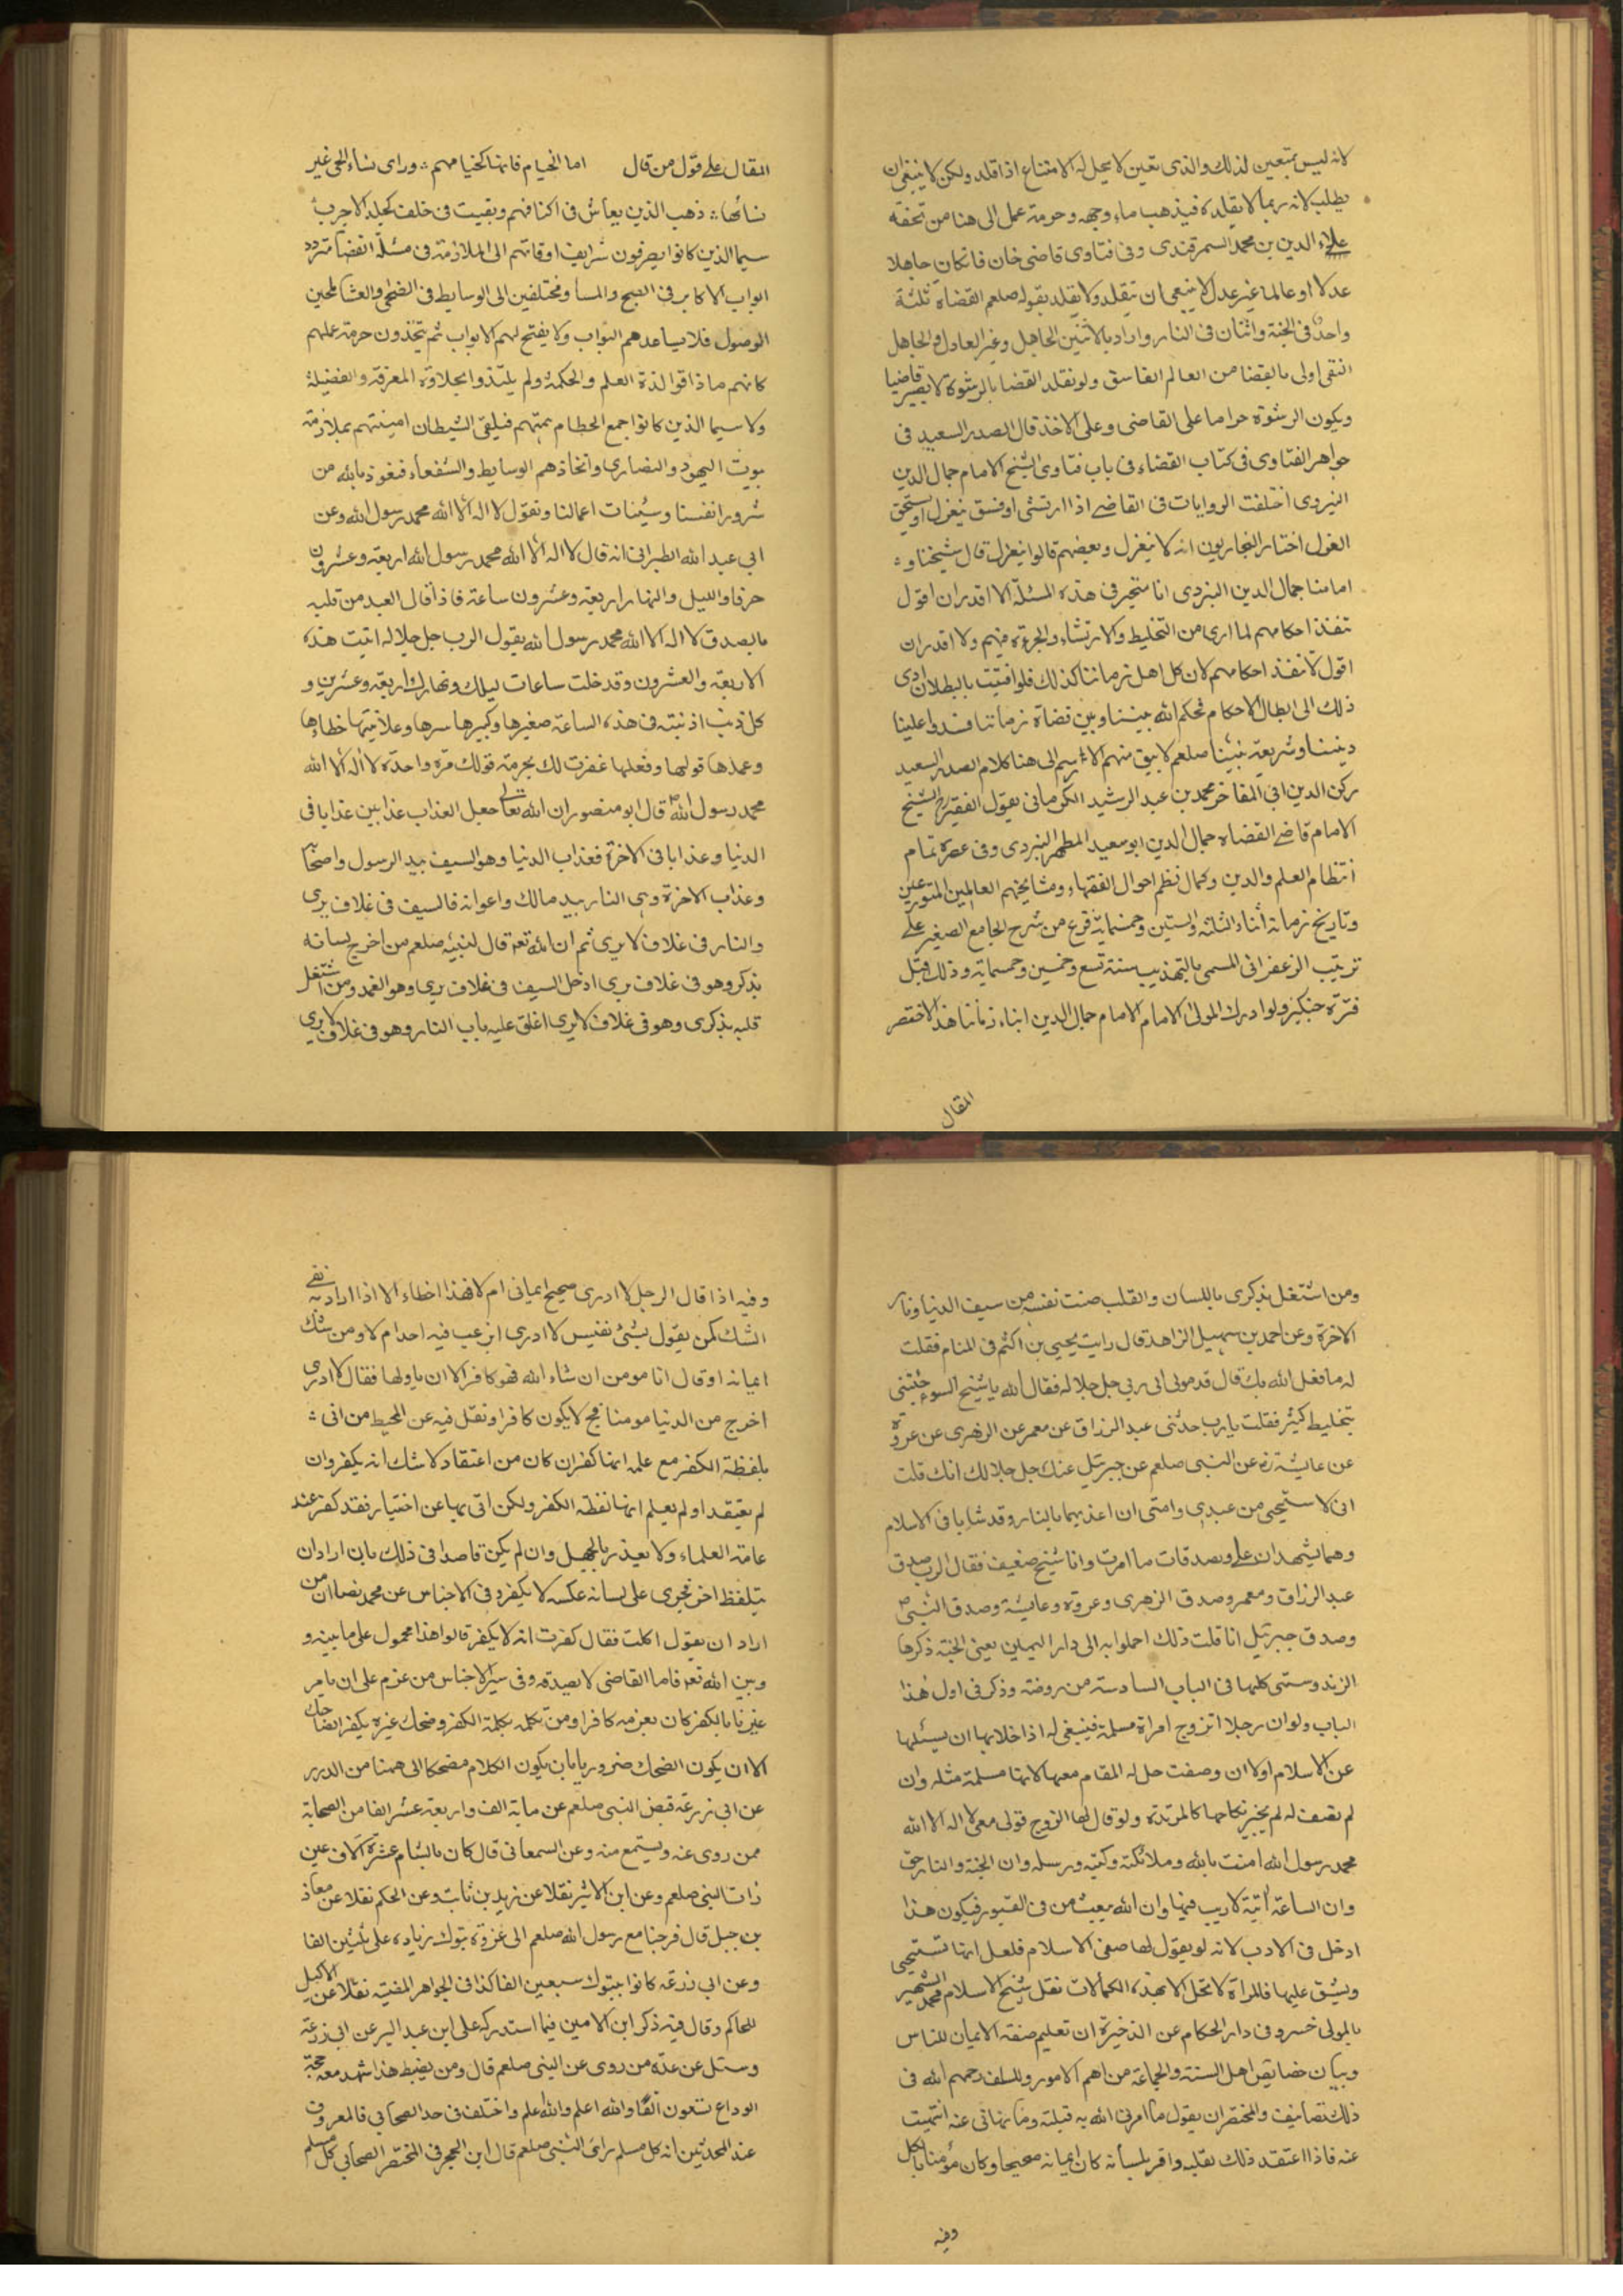 لانه ليس بمتعين لذلك والذى تعين لا يحل له الامتناع اذا قلد ولكن لا ينبغى ان
يطلب لانه ربما لا يقلده فيذهب ماء وجهه وحرمة عمل الى هنا من تحفة
علاء الدين بن محمد السمرقندى وفى فتاوى قاضى خان فانكان جاهلا
عدلا او عالما غير عدل لا ينبغى ان يتقلد ولا يقلد بقوله صلعم القضاة ثلثة
واحد فى الجنة واثنان فى النار واراد بالاثنين الجاهل وغير العادل والجاهل
التقى اولى بالقضا من العالم الفاسق ولو تقلد القضا بالرشوة لا يصير قاضيا
ويكون الرشوة حراما على القاضى وعلى الاخذ قال الصدر السعيد فى
جواهر الفتاوى فى كتاب القضاء فى باب فتاوى الشيخ الامام جمال الدين
اليزدى اختلفت الروايات فى القاضے اذا ارتشى او فسق ينعزل او يستحق
العزل اختار البخاريون انه لا ينعزل وبعضهم قالوا ينعزل قال شيخنا و
امامنا جمال الدين اليزدى انا متحير فى هذه المسئلة لا اقدر ان اقول
تنفذ احكامهم لما ارى من التخليط والارتشاء والجرءة فيهم ولا اقدر ان
اقول لا تنفذ احكامهم لان كل اهل زماننا كذلك فلو افتيت بالبطلان ادى
ذلك الى ابطال الاحكام فحكم الله بيننا وبين قضاة زماننا فسدوا علينا
ديننا وشريعة نبينا صلعم لا يبق منهم الا اسم الى هنا كلام الصدر السعيد
ركن الدين ابى المفاخر محمد بن عبد الرشيد الكرمانى يقول الفقير الشيخ
الامام قاضے القضاة جمال الدين ابو سعيد المطهر اليزدى وفى عصره تمام
انتظام العلم والدين وكمال نظم احوال الفقهاء ومشايخهم العالمين المتورعين
وتاريخ زمانه أثناء الثلثة والستين وخمسماية فرغ من شرح الجامع الصغير على
ترتيب الزعفرانى المسمى بالتهذيب سنة تسع وخمسين وخمسماية وذلك قبل
فترة جنكيز ولو ادرك المولى الامام الامام جمال الدين ابناء زماننا هذا لاختصر
المقال
المقال على قول من قال اما الخيام فانها كخيامهم ؞ وراى نساء الحى غير
نسائها ؞ ذهب الذين يعاش فى اكنافهم وبقيت فى خلف كجلد الاجرب
سيما الذين كانوا يصرفون شرايف اوقاتهم الى الملازمة فى مسئلة القضا متردد
ابواب الاكابر فى الصبح والمسا ومختلفين الى الوسايط فى الضحى والعشا طامحين
الوصول فلا يساعدهم النواب ولا يفتح لهم الابواب ثم يتخذون حرمة علمهم
كانهم ما ذاقوا لذة العلم والحكمة ولم يلتذوا بحلاوة المعرفة والفضيلة
ولا سيما الذين كانوا جمع الحطام بهمتهم فيلقى الشيطان امنيتهم بملازمة
بيوت اليهود والنصارى واتخاذهم الوسايط والشفعاء فنعوذ بالله من
شرور انفسنا وسيئات اعمالنا ونقول لا اله الا الله محمد رسول الله وعن
ابى عبد الله الطبرانى انه قال لا اله الا الله محمد رسول الله اربعة وعشرون
حرفا والليل والنهار اربعة وعشرون ساعة فاذا قال العبد من قلبه
بالصدق لا اله الا الله محمد رسول الله يقول الرب جل جلاله اتيت هذه
الاربعة والعشرون وقد خلت ساعات ليلك ونهارك اربعة وعشرين و
كل ذنب اذنبته فى هذه الساعة صغيرها وكبيرها سرها وعلانيتها خطاءها
وعمدها قولها وفعلها غفرت لك بحرمة قولك مرة واحدة لا اله الا الله
محمد رسول الله قال ابو منصور ان الله تعالى جعل العذاب عذابين عذابا فى
الدنيا وعذابا فى الاخرة فعذاب الدنيا وهو السيف بيد الرسول واصحابه
وعذاب الاخرة وهى النار بيد مالك واعوانه فالسيف فى غلاف يرى
والنار فى غلاف لا يرى ثم ان الله تعه قال لنبيه صلعم من اخرج لسانه
بذكر وهو فى غلاف يرى ادخل السيف فى غلاف يرى وهو الغمد ومن اشتغل
قلبه بذكرى وهو فى غلاف لا يرى اغلق عليه باب النار وهو فى غلاف لا يرى
ومن اشتغل بذكرى باللسان والقلب صنت نفسه من سيف الدنيا ونار
الاخرة وعن احمد بن سهيل الزاهد قال رايت يحيى بن اكثم فى المنام فقلت
له ما فعل الله بك قال قدمونى الى ربى جل جلاله فقال الله يا شيخ السوء جئتنى
بتخليط كثير فقلت يا رب حدثنى عبد الرزاق عن معمر عن الزهرى عن عروة
عن عايشة رضه عن النبى صلعم عن جبرئيل عنك جل جلالك انك قلت
انى لا ستحيى من عبدى وامتى ان اعذبهما بالنار وقد شابا فى الاسلام
وهما يشهدان على وبصدقات ما امرت وانا شيخ ضعيف فقال الرب صدق
عبد الرزاق ومعمر وصدق الزهرى وعروة وعايشة وصدق النبى
وصدق جبرئيل انا قلت ذلك احملوا به الى دار اليمين يعنى الجنة ذكرها
الزندوستى كلها فى الباب السادسة من روضته وذكر فى اول هذا
الباب ولو ان رجلا اتزوج امراة مسلمة فينبغى له اذا خلا بها ان يسئلها
عن الاسلام اولا ان وصفت حل له المقام معها لانها مسلمة مثله وان
لم يصف له لم يخير نكاحها كالمرتدة ولو قال لها الزوج قولى معى لا اله الا الله
محمد رسول الله امنت بالله وملائكته وكتبه ورسله وان الجنة والنار حق
وان الساعة اتية لا ريب فيها وان الله يبعث من فى القبور فيكون هذا
ادخل فى الادب لانه لو يقول لها صفى الاسلام فلعل انها تستحيى
ويشق عليها فالمراة لا تحل الا بهذه الكمالات نقل شيخ الاسلام محمد الشهير
بالمولى خسرو فى دار الحكام عن الذخيرة ان تعليم صفة الايمان للناس
وبيان خصايص اهل السنة والجماعة من اهم الامور وللسلف رحمهم الله فى
ذلك تصانيف والمختصر ان يقول ما امرنى الله به قبلته وما نهانى عنه انتهيت
عنه فاذا اعتقد ذلك بقلبه واقر بلسانه كان ايمانه صحيحا وكان مؤمنا بالكل
وفيه
وفيه اذا قال الرجل لا ادرى صحيح ايمانى ام لا فهذا اخطاء الا اذا اراد به نفى
الشك كمن يقول بشئ نفيس لا ادرى ارغب فيه احد ام لا ومن شك
ايمانه او قال انا مومن ان شاء الله فهو كافر الا ان ياولها فقال لا ادرى
اخرج من الدنيا مومنا فح لا يكون كافرا ونقل فيه عن المحيط من اتى ؞
بلفظة الكفر مع علمه انها كفر ان كان من اعتقاد لا شك انه يكفر وان
لم يعتقد او لم يعلم انها لفظة الكفر ولكن اتى بها عن اختيار فقد كفر عند
عامة العلماء ولا يعذر بالجهل وان لم يكن قاصدا فى ذلك بان اراد ان
يتلفظ اخر فجرى على لسانه عكسه لا يكفر وفى الاجناس عن محمد نصا ان من
اراد ان يقول اكلت فقال كفرت انه لا يكفر قالوا هذا محمول على ما بينه و
وبين الله تعه فاما القاضى لا يصدقه وفى سير الاجناس من عزم على ان يامر
غيرنا بالكفر كان بعزمه كافرا ومن تكلم بكلمة الكفر وضحك غيره يكفر الضاحك
الا ان يكون الضحك ضروريا بان يكون الكلام مضحكا الى ههنا من الدرر
عن ابى زرعة قبض النبى صلعم عن ماية الف واربعة عشر الفا من الصحابة
ممن روى عنه ويستمع منه وعن السمعانى قال كان بالشام عشرة الاف عين
رات النبى صلعم وعن ابن الاثير نقلا عن زيد بن ثابت وعن الحكم نقلا عن معاذ
بن جبل قال خرجنا مع رسول الله صلعم الى غزوة تبوك زيادة على ثلثين الفا
وعن ابى زرعة كانوا بتبوك سبعين الفا كذا فى الجواهر المضية نقلا عن الاكليل
للحاكم وقال فيه ذكر ابن الامين فيما استدركه على ابن عبد البر عن ابى زرعة
وسئل عن عدة من روى عن النبى صلعم قال ومن يضبط هذا شهد معه حجة
الوداع تسعون الفا والله اعلم والله علم واختلف فى حد الصحابى فالمعروف
عند المحدثين انه كل مسلم راى النبى صلعم قال ابن الحجر فى المختصر الصحابى كل مسلم